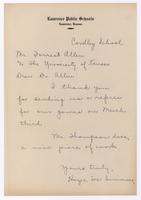 Lawrence Public Schools
Lawrence, Kansas
Cordley School
Mr. Forrest Allen
% The University of Kansas
Dear Dr. Allen:
I thank you
for sending us a referee
for our games on March
third.
Mr. Thompson does
a nice piece of work.
Yours truly,